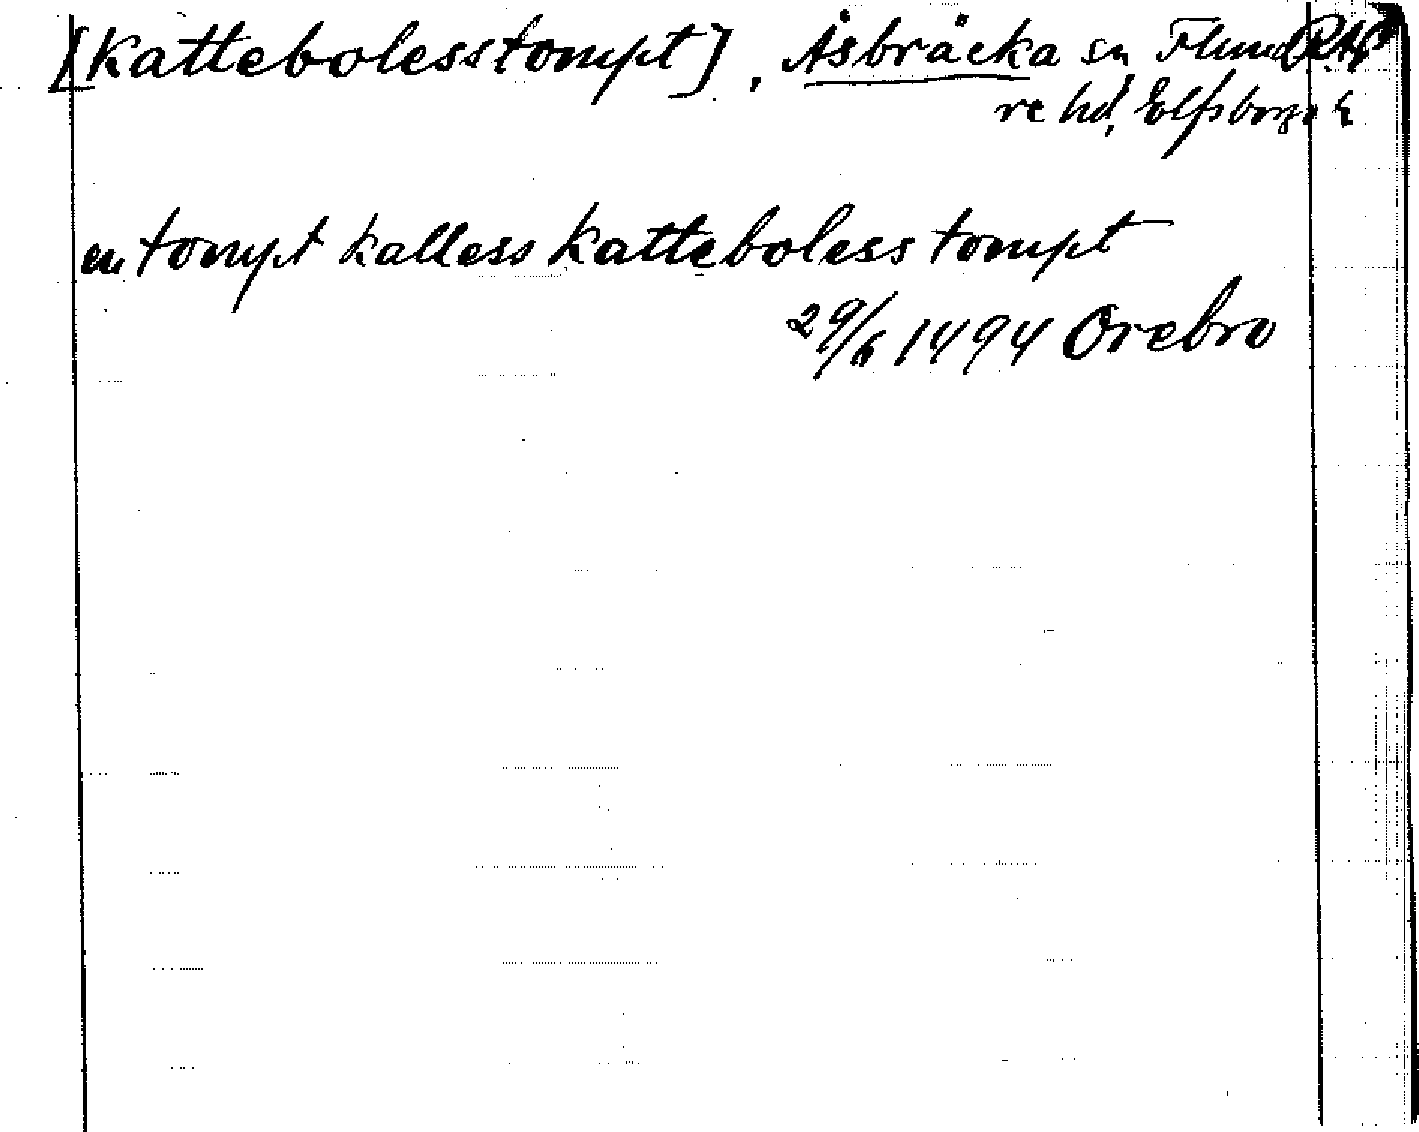 [Kattebolesstompt], Åsbräcka sn, Flund
re hd, Elfsborgs l
en tompt kalless Katteboless tompt
29/6 1494 Örebro